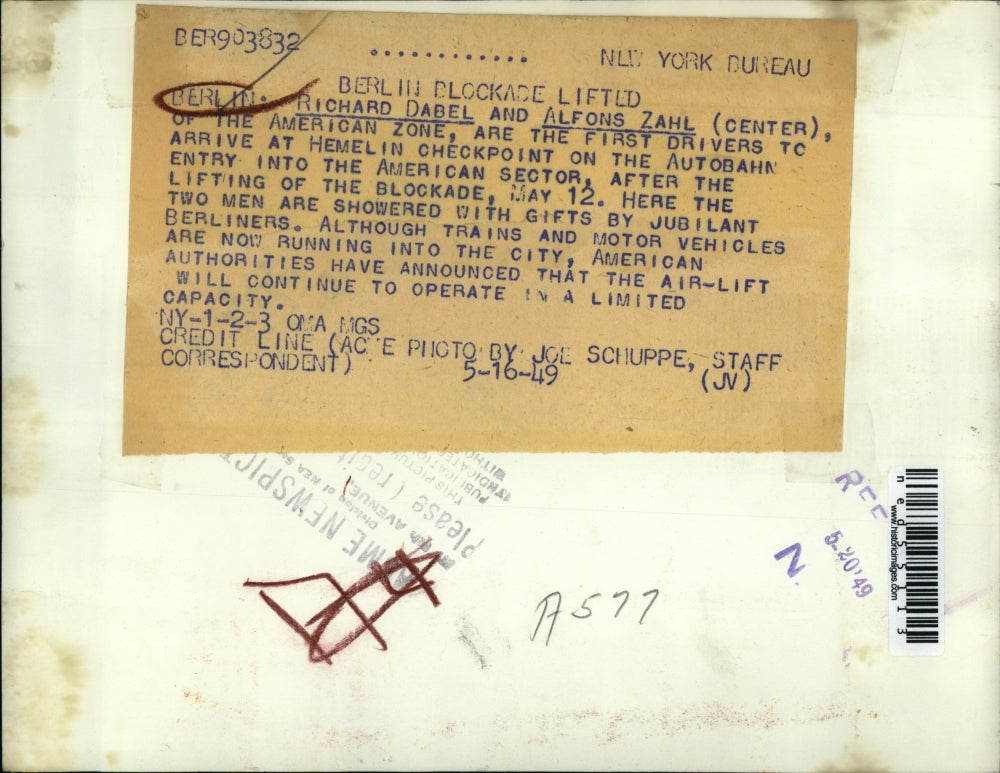 BER903832
.............
NEW YORK BUREAU
BERLIN BLOCKADE LIFTED
BERLIN: RICHARD DABEL AND ALFONS ZAHL (CENTER),
OF THE AMERICAN ZONE, ARE THE FIRST DRIVERS TO
ARRIVE AT HEMELIN CHECKPOINT ON THE AUTOBAHN
ENTRY INTO THE AMERICAN SECTOR, AFTER THE
LIFTING OF THE BLOCKADE, MAY 12. HERE THE
TWO MEN ARE SHOWERED WITH GIFTS BY JUBILANT
BERLINERS. ALTHOUGH TRAINS AND MOTOR VEHICLES
ARE NOW RUNNING INTO THE CITY, AMERICAN
AUTHORITIES HAVE ANNOUNCED THAT THE AIR-LIFT
WILL CONTINUE TO OPERATE IN A LIMITED
CAPACITY.
NY-1-2-3 OMA MGS
CREDIT LINE (ACME PHOTO BY JOE SCHUPPE, STAFF
CORRESPONDENT) 5-16-49 (JV)
THIS PICTU
PUBLICATIO
INDICATED
WITHO
Please Credit
ACME NEWSPICT
Division of NEA
AVENUE,
REF
5-20'49
N.
A577
ned55113
www.historicimages.com